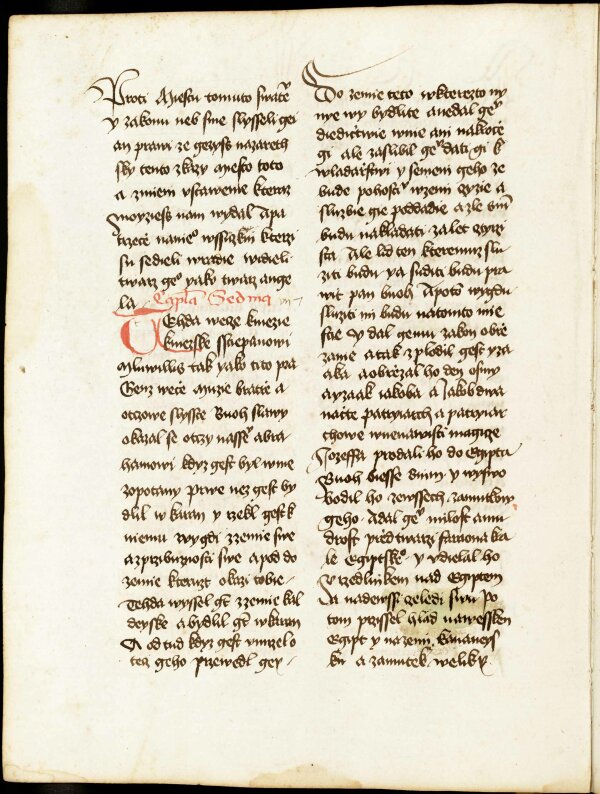 Proti Miestu tomuto swate
y zakonu neb sme slysseli gei
an prawi ze gezyss nazareth
sky tento zkazy miesto toto
a zmiem vstawenie kteraz
moyziess nam wydal A pa
trziece nanie wssiczkni kterzi
su sedieli w radie widieli
twarz geo yako twarz ange
la Capla Sedma
Tehda wece kniezie
kniezske sscepanowi
Mluwilliss tak yako tito pra
Genz wece Muzie bratrie a
otczowe slysste Buoh slawy
okazal se otczy nassemu abra
hamowi kdyz gest byl w me
zopotany prwe nez gest by
dlil w karan y rzekl gest k
niemu wygdi z zemie swe
a z przibuznosti swe a pod do
zemie kterazt okazi tobie
Tehda wyssel gt z zemie kal
deyske a bydlil gt w karan
A od tud kdyz gest vmrzel o
tecz geho przewedl gey
Do zemie teto w kterezto ny
nye wy bydlite a nedal gey
diedictwie w nie ani na kroce
gi ale zaslibil geo dati gi k
wladarstwi y semeni geho ze
bude pohostu w zemi cyzie a
sluzbie gie poddadie a zle gim
budu nakladati za let cztyrzi
sta Ale lid ten kteremuz slu
ziti budu ya suditi budu pra
wit pan buoh A potom wygdu
sluziti mi budu na tomto mie
stie y dal gemu zakon obrze
zanie a tak zplodil gest yza
aka a obrzezal ho den osmy
a yzaak iakoba a Iakob dwa
nacte patryarch a patryar
chowe w nenawisti magicze
Iozeffa prodali ho do Egipta
Buoh biesse s nim y wyswo
bodil ho ze wssech zamutkow
geho A dal geo milost a mu
drost przed twarzi faraona kra
le Egiptskeo y vdielal ho
vrzednikem nad Egiptem
A nade wssi czeledi swu Po
tom przissel hlad na wessken
Egipt y na zemi Kananeys
ku a zamutek weliky